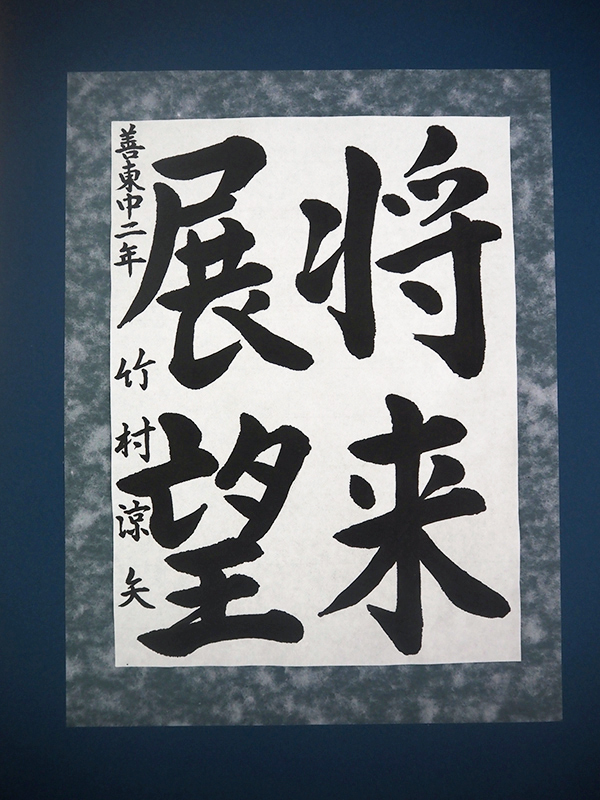 将来
展望
善東中二年 竹村涼矢